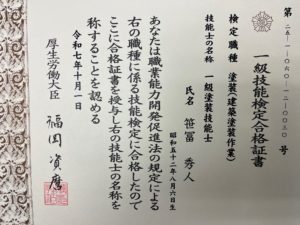 第二五-一-〇六〇-一三-〇〇三〇号
一級技能検定合格証書
検定職種　塗装(建築塗装作業)
技能士の名称　一級塗装技能士
氏名　笹冨　秀人
昭和五十二年八月六日生
あなたは職業能力開発促進法の規定による
右の職種に係る技能検定に合格したので
ここに合格証書を授与し右の技能士の名称を
称することを認める
令和七年十月一日
厚生労働大臣　福岡資麿